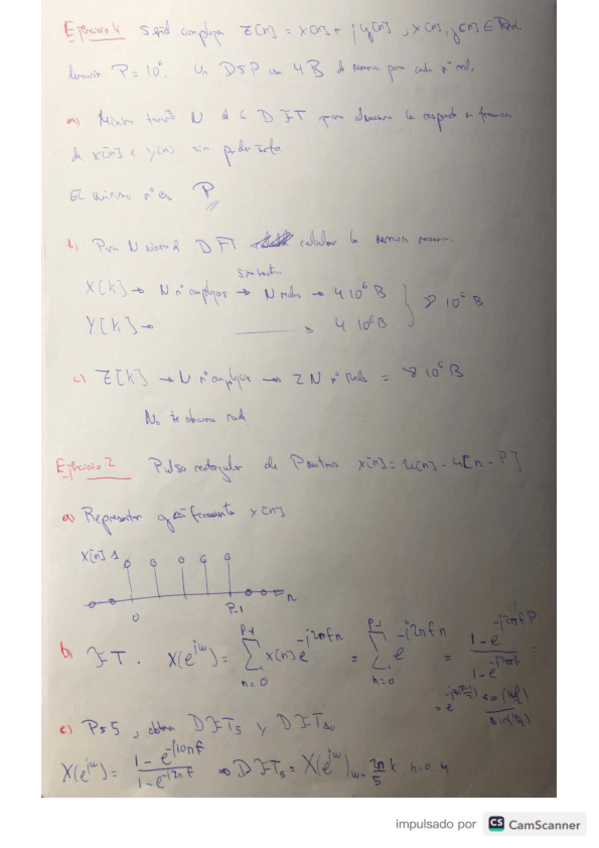 Ejercicio 4 Señal compleja z[n] = x[n] + j y[n], x[n], y[n] ∈ Real.
P = 10⁶. Un DSP con 4 B de memoria para cada nº real.
a) Mínimo tamaño N de la DFT para almacenar la respuesta en frecuencia
de x[n] e y[n] sin perder info
El mínimo nº es P
b) Para N DFT calcular la memoria necesaria.
simetría
X[k] → N nº complejos → N reales → 4 10⁶ B
Y[k] → 4 10⁶ B } 8 10⁶ B
c) Z[k] → N nº complejos → 2 N nº reales = 8 10⁶ B
No te ahorras nada.
Ejercicio 2 Pulso rectangular de P puntos x[n] = u[n] - u[n - P]
a) Representar gráficamente x[n]
x[n] 1
n
0 P-1
b) FT. X(e^{jω}) = Σ_{n=0}^{P-1} x[n] e^{-j2πfn} = Σ_{n=0}^{P-1} e^{-j2πfn} = (1 - e^{-j2πfP}) / (1 - e^{-j2πf}) =
c) P=5, obtener DFT₅ y DFT₁₀
X(e^{jω}) = (1 - e^{-j10πf}) / (1 - e^{-j2πf}) → DFT₅ = X(e^{jω})|_{ω = 2π/5 k},
impulsado por CS CamScanner